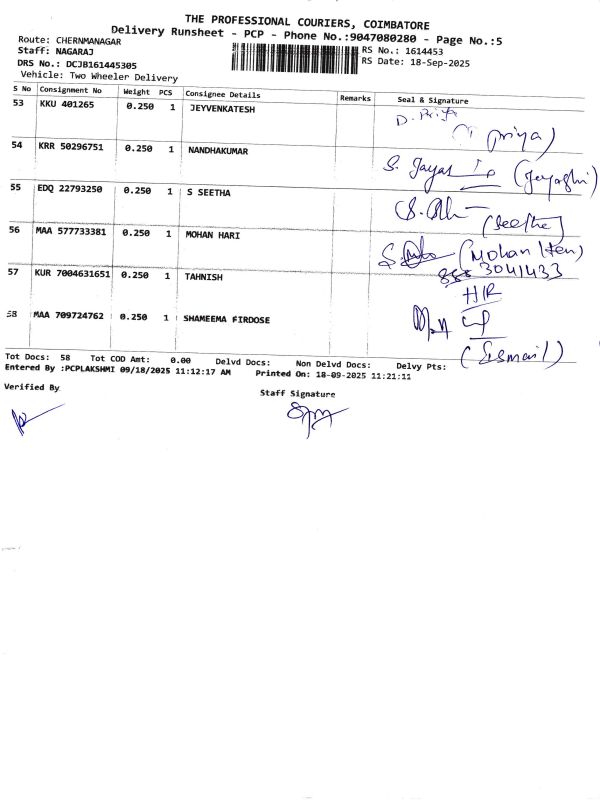 THE PROFESSIONAL COURIERS, COIMBATORE
Delivery Runsheet - PCP - Phone No.:9047080280 - Page No.:5
Route: CHERNMANAGAR
RS No.: 1614453
Staff: NAGARAJ
RS Date: 18-Sep-2025
DRS No.: DCJB161445305
Vehicle: Two Wheeler Delivery
S No Consignment No Weight PCS Consignee Details Remarks Seal & Signature
53 KKU 401265 0.250 1 JEYVENKATESH D. Priya (priya)
54 KRR 50296751 0.250 1 NANDHAKUMAR S.
55 EDQ 22793250 0.250 1 S SEETHA (Seetha)
56 MAA 577733381 0.250 1 MOHAN HARI (Mohan
3041433
57 KUR 7004631651 0.250 1 TAHNISH H/R
58 MAA 709724762 0.250 1 SHAMEEMA FIRDOSE
Tot Docs: 58 Tot COD Amt: 0.00 Delvd Docs: Non Delvd Docs: Delvy Pts:
Entered By :PCPLAKSHMI 09/18/2025 11:12:17 AM Printed On: 18-09-2025 11:21:11
Verified By
Staff Signature